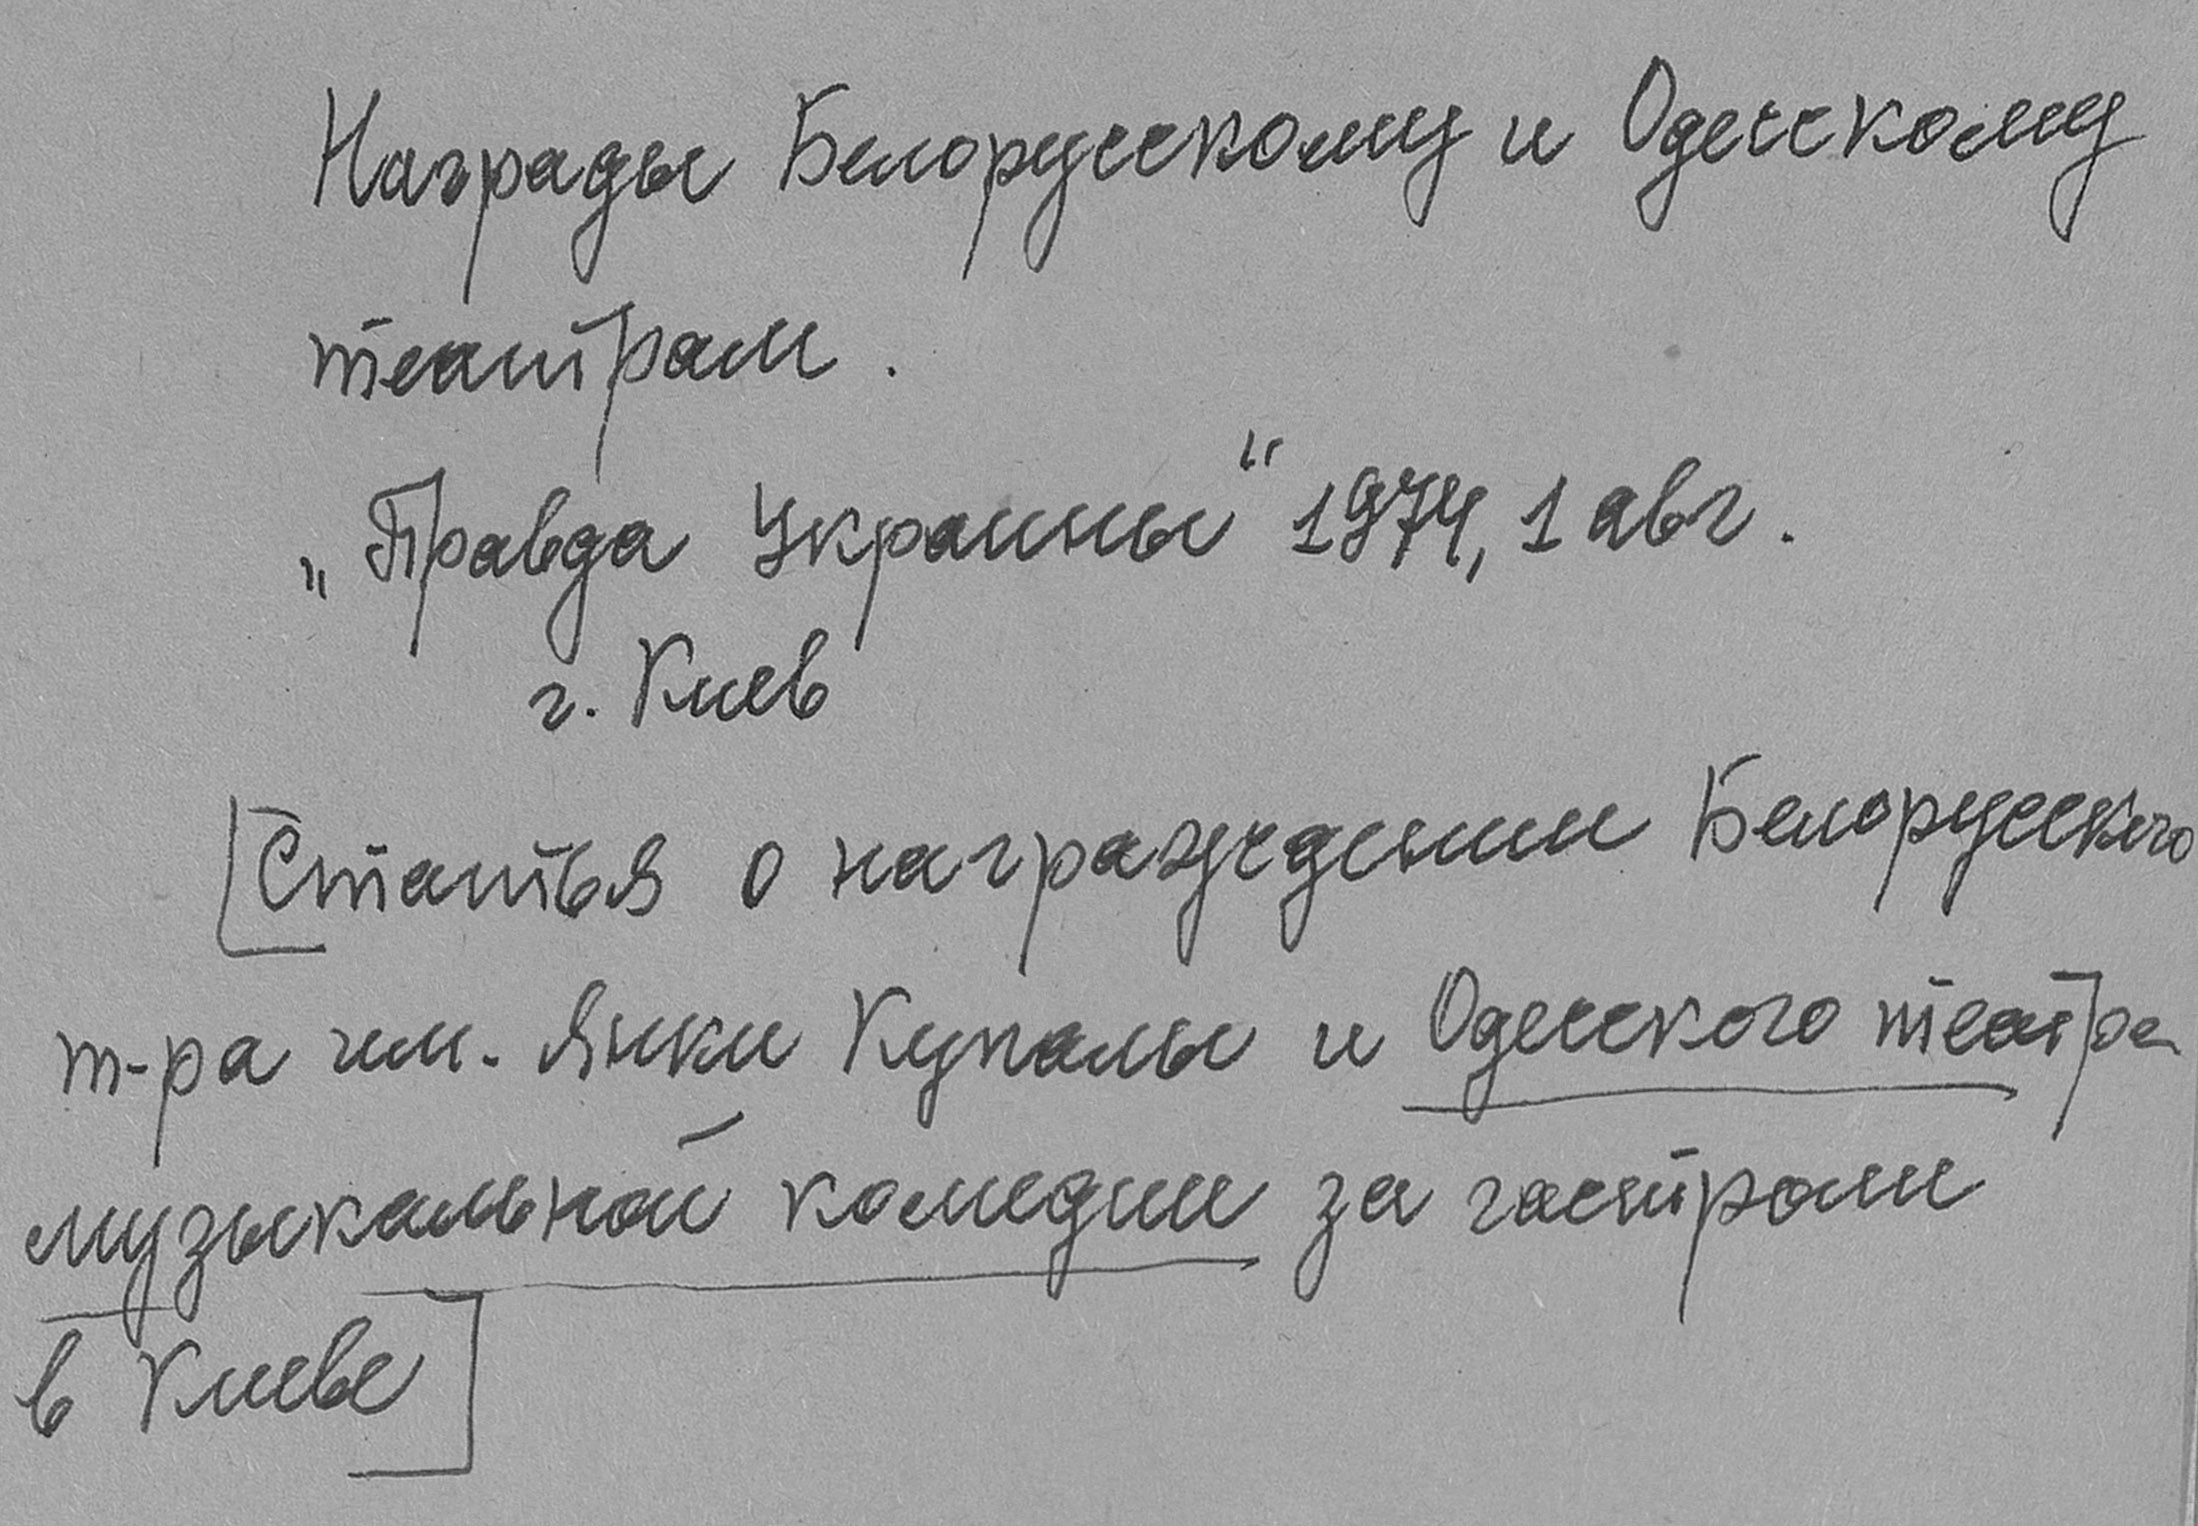 Награды Белорусскому и Одесскому
театрам.
„Правда Украины“ 1974, 1 авг.
г. Киев
[Статья о награждении Белорусского
т-ра им. Янки Купалы и Одесского театра
музыкальной комедии за гастроли
в Киеве]